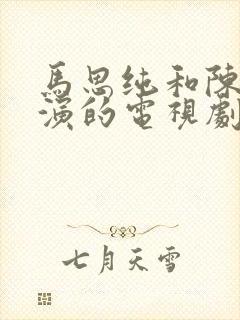 馬思纯和陳
演的電視劇
七月天雪